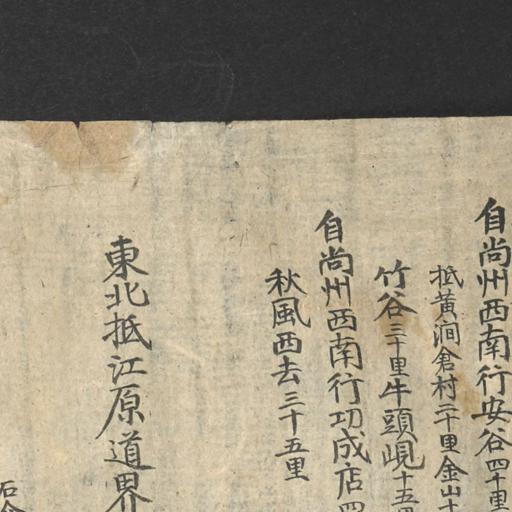 自尚州西南行安谷四十里
抵黃澗倉村二十里金山十
竹谷三十里牛頭峴十五里
自尚州西南行功成店四
秋風西去三十五里
東北抵江原道界
石倉